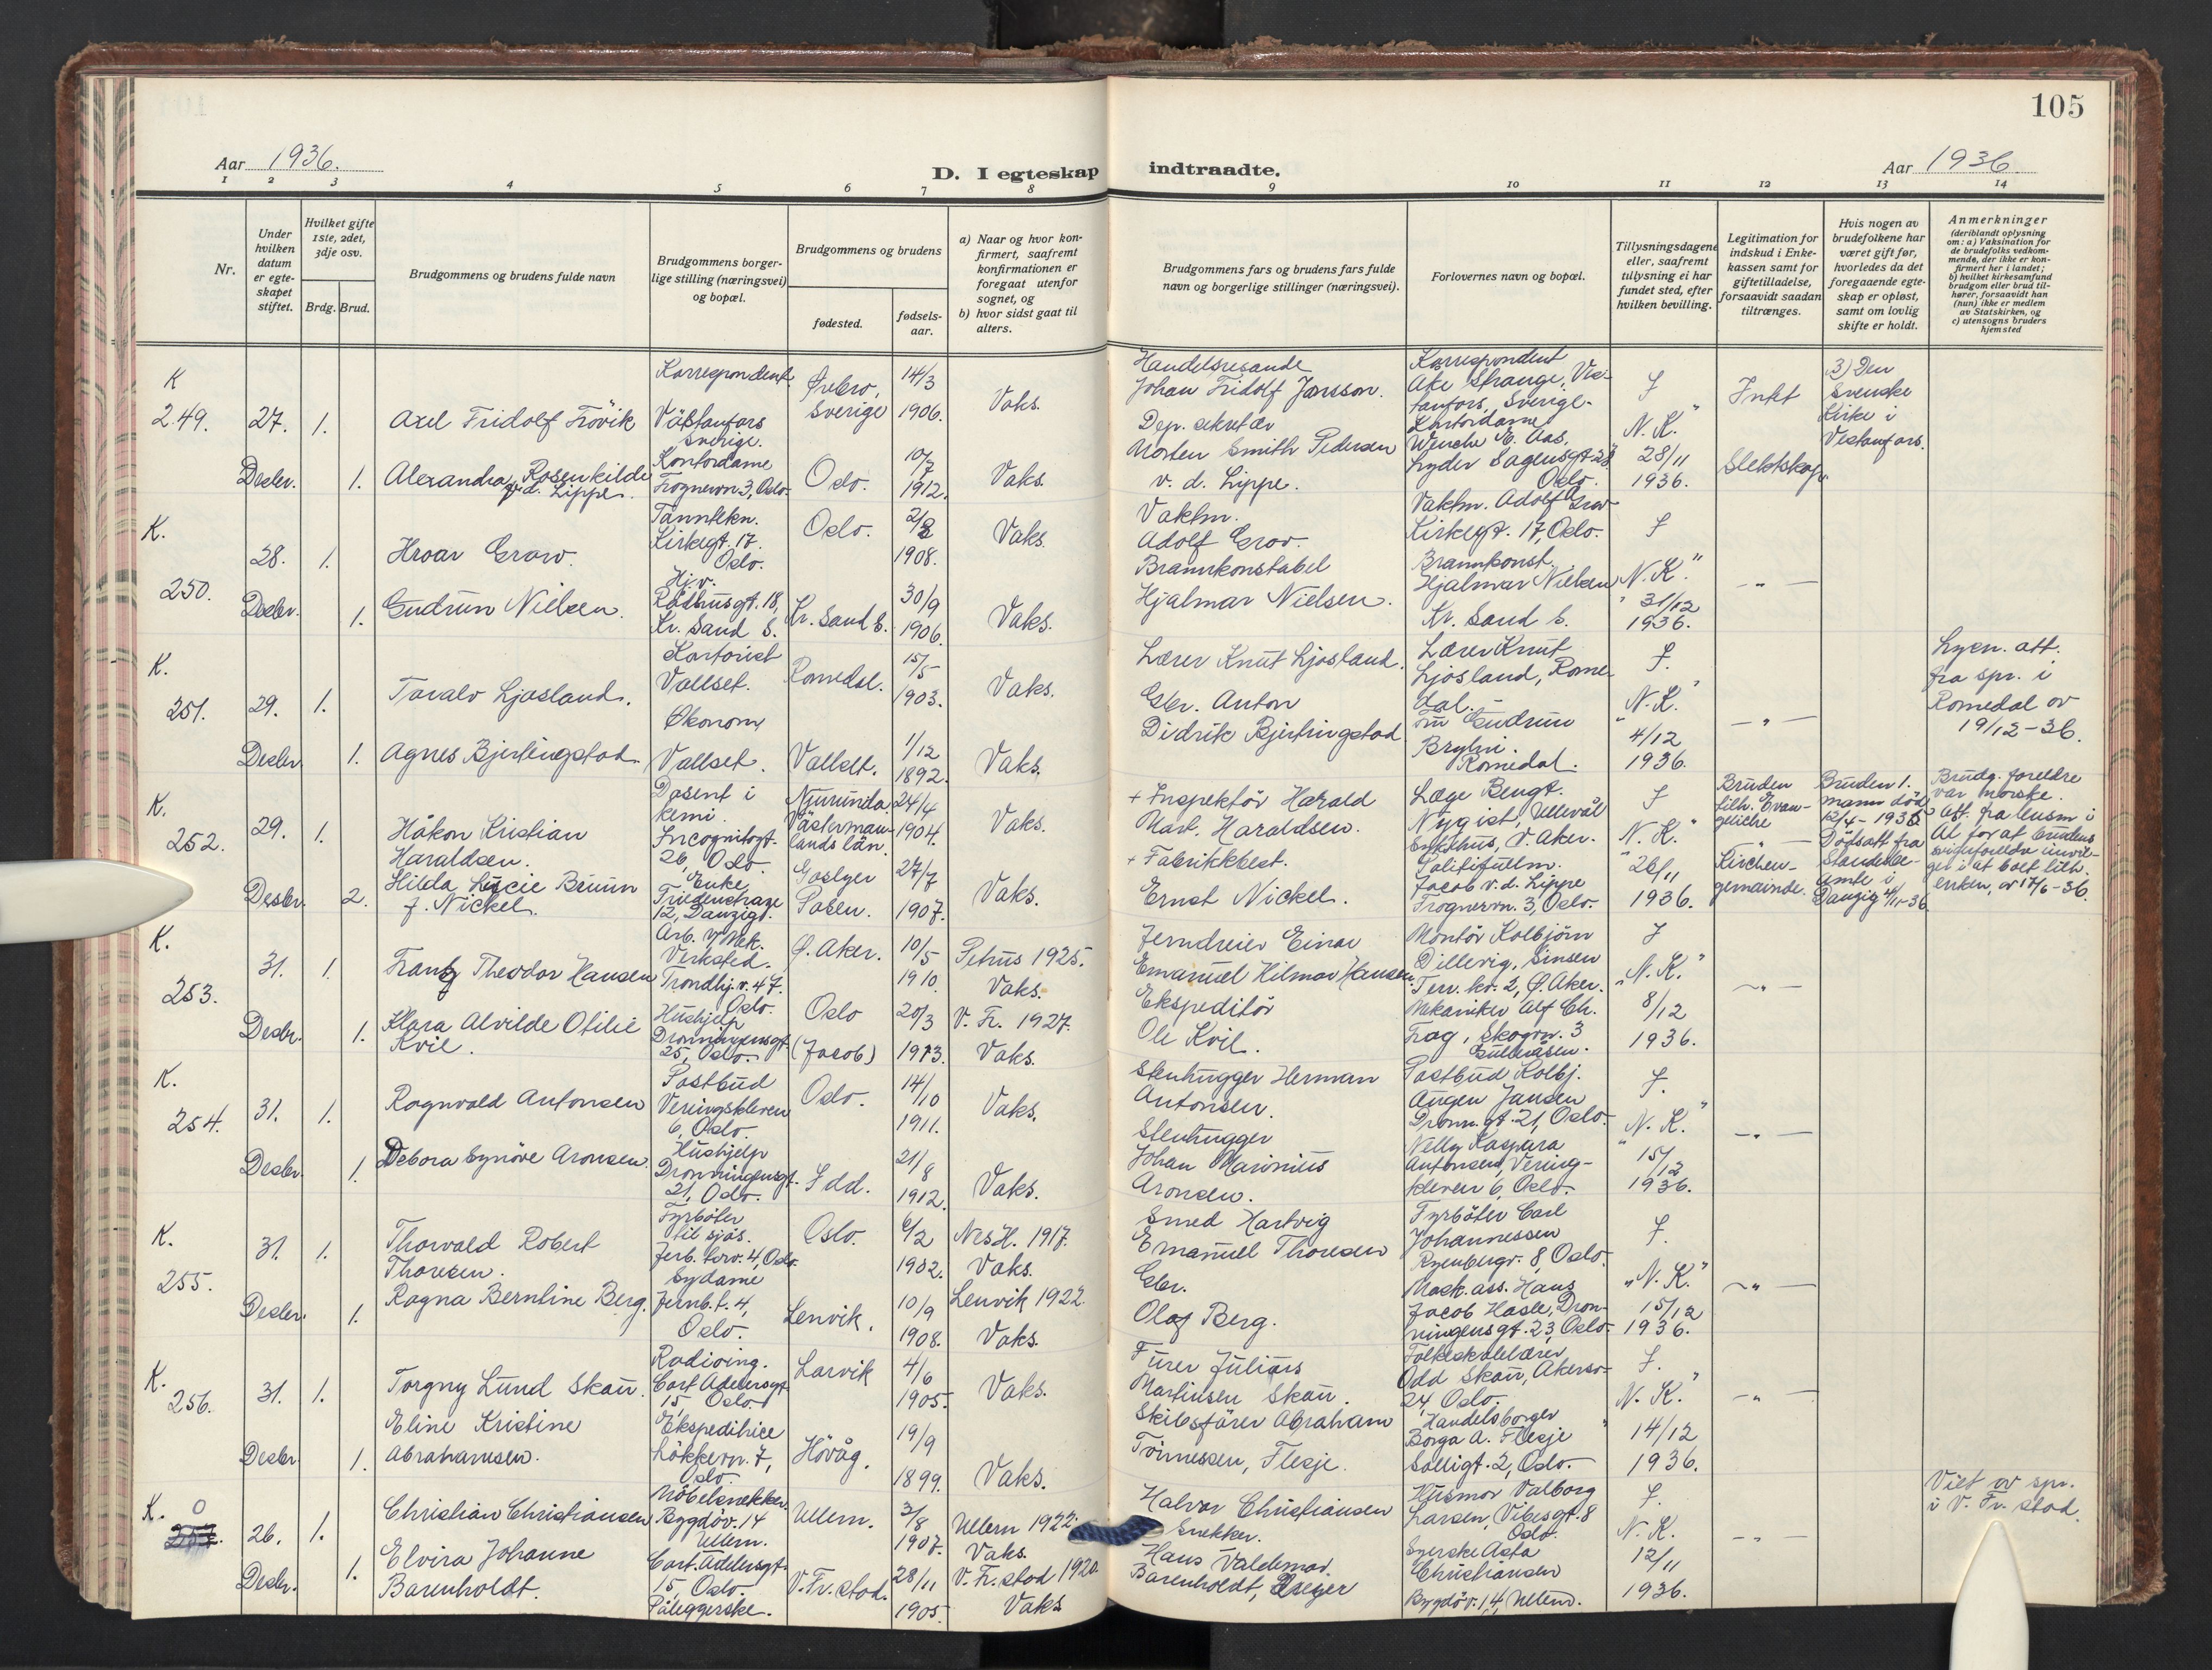 105
Aar 1936.
D. I egteskap indtraadte.
Aar 1936
1 2 3 4 5 6 7 8 9 10 11 12 13 14
Nr.
Under hvilken datum er egteskapet stiftet.
Hvilket gifte 1ste, 2det, 3dje osv.
Brdg. Brud.
Brudgommens og brudens fulde navn
Brudgommens borgerlige stilling (næringsvei) og bopæl.
Brudgommens og brudens
fødested.
fødselsaar.
a) Naar og hvor konfirmert, saafremt konfirmationen er foregaat utenfor sognet, og
b) hvor sidst gaat til alters.
Brudgommens fars og brudens fars fulde navn og borgerlige stillinger (næringsvei).
Forlovernes navn og bopæl.
Tillysningsdagene eller, saafremt tillysning ei har fundet sted, efter hvilken bevilling.
Legitimation for indskud i Enkekassen samt for giftetilladelse, forsaavidt saadan tiltrænges.
Hvis nogen av brudefolkene har været gift før, hvorledes da det foregaaende egteskap er opløst, samt om lovlig skifte er holdt.
Anmerkninger
(deriblandt oplysning om: a) Vaksination for de brudefolks vedkommende, der ikke er konfirmert her i landet; b) hvilket kirkesamfund brudgom eller brud tilhører, forsaavidt han (hun) ikke er medlem av Statskirken, og c) utensogns bruders hjemsted
K
249.
27. Desbr.
1.
Axel Fridolf Frövik
Korrespondent
Västanfors
Sverige.
Ørebro,
Sverige
14/3
1906.
Vaks.
Handelsresande
Johan Fridolf Jansson.
Korrespondent
Åke Strange, Vestanfors, Sverige.
J
"N. K."
28/11
1936.
Intet
Slektskap
3) Den
Svenske
Kirke i
Vestanfors.
1.
Alexandra Rosenkilde
v. d. Lippe.
Kontordame
Frognervn. 3, Oslo.
Oslo.
10/7
1912.
Vaks.
Dep. sekretær
Morten Smith Petersen
v. d. Lippe.
Kontordame
Wenche E. Aas,
Lyder Sagensgt 28
Oslo.
K.
250.
28. Desbr.
1.
Hroar Grov.
Tanntekn.
Kirkegt. 17.
Oslo.
Oslo.
2/8
1908.
Vaks.
Vaktm.
Adolf Grov.
Vaktm. Adolf Grov
Kirkegt. 17, Oslo.
J
"N. K."
31/12
1936.
1.
Gudrun Nielsen.
Hj.v.
Rådhusgt. 18,
Kr. Sand S.
Kr. Sand S.
30/9
1906.
Vaks.
Brannkonstabel
Hjalmar Nielsen.
Brannkonst.
Hjalmar Nielsen
Kr. Sand S.
K.
251.
29. Desbr
1.
Toralv Ljosland.
Kontorist
Vallset.
Romedal.
15/5
1903.
Vaks.
Lærer Knut Ljosland.
Lærer Knut
Ljosland, Romedal.
J.
"N. K."
4/12
1936.
Lysn. att.
fra spr. i
Romedal av
19/12-36.
1.
Agnes Bjertingstad
Økonom
Vallset.
Vallset.
1/12
1892.
Vaks.
Gbr. Anton
Didrik Bjertringstad
fru Gudrun
Bryhni.
Romedal.
K.
252.
29. Desbr
1.
Håkon Kristian
Haraldsen.
Dosent i
kemi.
Incognitogt.
26, Oslo.
Njurunda
Västernorrlands län.
24/4
1904.
Vaks.
+ Inspektör Harald
Mart. Haraldsen.
Læge Bengt
Nygist, Ullevål
Sykehus, V. Aker.
J
"N. K."
26/11
1936.
Bruden
tilh. Evangeliche
Kirchengemeinde.
Bruden 1.
mann död
12/4-1935
Döfsatt fra
Standesamte i
Danzig 4/11-36
Brudg. foreldre
var norske.
2.
Hilda Lucie Bruun
f. Nickel.
Enke
12, Danzig.
Goslyer
Posen.
27/7
1907.
Vaks.
+ Fabrikkbest.
Ernst Nickel.
Politifullm.
Jacob v. d. Lippe
Frognervn. 3, Oslo.
K.
253.
31. Desbr.
1.
Frantz Theodor Hansen
Arb. v/ Mek.
Verksted.
Trondhj.v. 47.
Oslo.
Ø. Aker.
10/5
1910.
Petrus 1925.
Vaks.
Jerndreier Einar
Emanuel Hilmar Hansen.
Montör Kolbjörn
Dillevig, Sinsen
Terr. kv. 2, Ø. Aker.
J
"N. K."
8/12
1936.
1.
Klara Alvilde Otilie
Kvil.
Hushjelp
Dronningensgt.
25, Oslo.
Oslo
(Jacob)
20/3
1913.
V. Fr. 1927.
Vaks.
Ekspeditör
Ole Kvil.
Mekaniker Alf Ch.
Frag, Skogvn. 3
K.
254.
31. Desbr.
1.
Ragnvald Antonsen
Postbud
Veringskleven
6, Oslo.
Oslo.
14/10
1911.
Vaks.
Stenhugger Herman
Antonsen.
Postbud Kolbj.
Augen Jansen
Dronn. gt. 21, Oslo.
J.
"N. K."
15/12
1936.
1.
Debora Synöve Aronsen.
Hushjelp
Dronningensgt.
21, Oslo.
Idd.
21/8
1912.
Vaks.
Stenhugger
Johan Marinius
Aronsen.
Nelly Kaspara
Antonsen, Veringkleven 6, Oslo.
K.
255.
31. Desbr.
1.
Thorvald Robert
Thoresen.
Fyrböter
til sjös.
Jerb. torv. 4, Oslo.
Oslo.
6/2
1902.
Nes H. 1917.
Vaks.
Smed Hartvig
Emanuel Thoresen
Fyrböter Carl
Johannessen
Ryenbergv. 8, Oslo.
J.
"N. K."
15/12
1936.
1.
Ragna Berntine Berg.
Sydame
Jernb. t. 4,
Oslo.
Lenvik.
10/9
1908.
Lenvik 1922.
Vaks.
Gbr.
Olaf Berg.
Mask. ass. Hans
Jacob Hasle, Dronningensgt. 23, Oslo.
K.
256.
31. Desbr
1.
Torgny Lund Skau.
Radioing.
Cort Adelersgt.
15, Oslo.
Larvik
4/6
1905.
Vaks.
Furer Julius
Martinsen Skau.
Folkeskolelærer
Odd Skau, Akersv.
24, Oslo.
J.
"N. K."
14/12
1936.
1.
Eline Kristine
Abrahamsen.
Ekspeditrice
Lökkevn. 7,
Oslo.
Hövåg.
19/9
1899.
Vaks.
Skibsförer Abraham
Tönnessen, Flesje.
Handelsborger
Borga A. Flesje
Solligt. 2, Oslo.
K. 0
257.
26. Desbr.
1.
Christian Christiansen
Möbelsnekker.
Bygdöv. 14
Ullern.
Ullern.
3/8
1907.
Ullern 1922.
Vaks.
Halvor Christiansen
Snekker.
Husmor Valborg
Larsen, Vibesgt. 8
Oslo.
J.
N. K.
12/11
1936.
Viet av spr.
i V. Fr. stad.
1.
Elvira Johanne
Barenholdt.
Cort. Adelersgt.
15, Oslo.
Påleggerske.
V. Fr. stad.
28/11
1905.
V. Fr. stad 1920
Vaks
Hans Valdemar
Barenholdt,
Syerske Asta
Christiansen
Bygdöv. 14, Ullern.